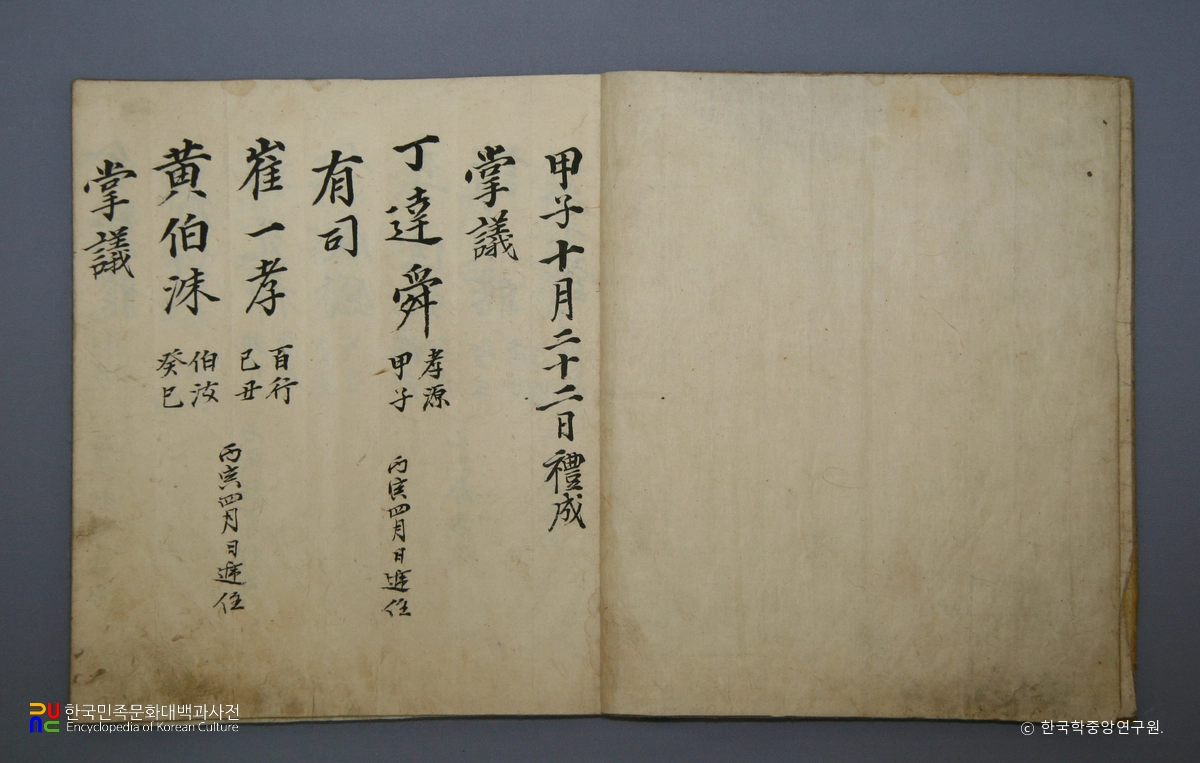 甲子十月二十二日禮成
掌議
丁達舜 孝源 甲子 丙寅四月日遞任
有司
崔一孝 百行 己丑
黃伯洙 伯汝 癸巳 丙寅四月日遞任
掌議
한국민족문화대백과사전
Encyclopedia of Korean Culture
ⓒ 한국학중앙연구원.